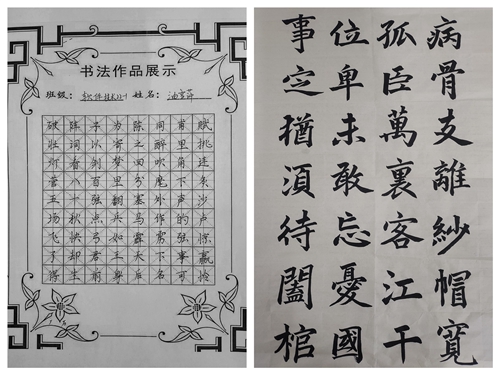 书法作品展示
班级: 软件技术 姓名:
破阵子为陈同甫赋
壮词以寄之醉里挑
灯看剑梦回吹角连
营八百里分麾下炙
五十弦翻塞外声沙
场秋点兵马作的卢
飞快弓如霹雳弦惊
了却君王天下事赢
得生前身后名可怜
病骨支離紗帽寬
孤臣萬裏客江干
位卑未敢忘憂國
事定猶須待闔棺